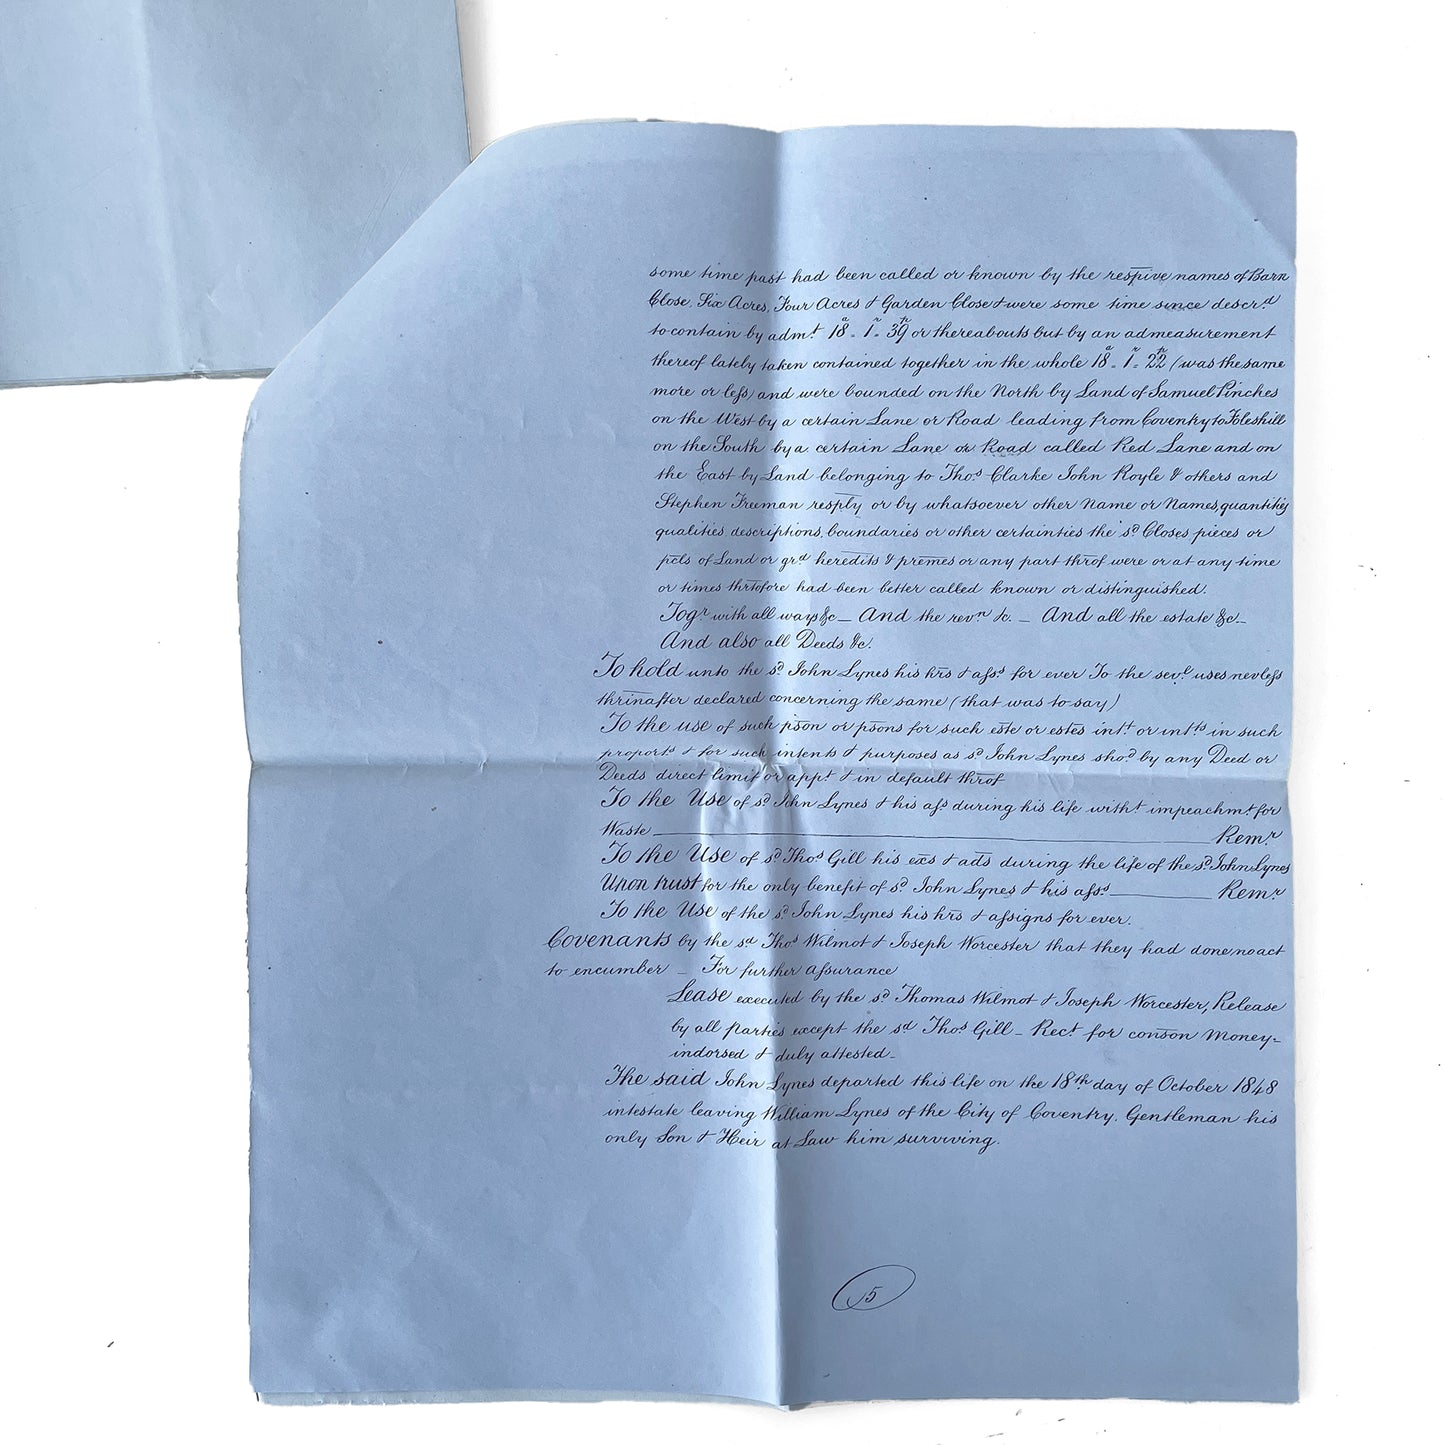 some time past had been called or known by the respive names of Barn
Close, Six Acres, Four Acres & Garden Close & were some time since descr.d
to contain by adm.t 18a - 1r - 39p or thereabouts but by an admeasurement
thereof lately taken contained together in the whole 18a - 1r - 22p (was the same
more or less) and were bounded on the North by Land of Samuel Pinches
on the West by a certain Lane or Road leading from Coventry to Foleshill
on the South by a certain Lane or Road called Red Lane and on
the East by Land belonging to Tho.s Clarke John Royle & others and
Stephen Freeman resply or by whatsoever other Name or Names, quantities
qualities, descriptions, boundaries or other certainties the sd Closes pieces or
pcls of Land or gr.d heredits & premes or any part throf were or at any time
or times thrtofore had been better called known or distinguished.
Togr with all ways &c — And the revn &c. — And all the estate &c. —
And also all Deeds &c.
To hold unto the sd John Lynes his hrs & ass.s for ever To the sev.l uses nevless
thrinafter declared concerning the same (that was to say)
To the use of such pson or psons for such este or estes int.t or int.ts in such
proport.s & for such intents & purposes as sd John Lynes sho.d by any Deed or
Deeds direct limit or app.t & in default throf
To the Use of sd John Lynes & his ass during his life with.t impeachm.t for
Waste ——— Rem.r
To the Use of sd Tho.s Gill his exs & ads during the life of the sd John Lynes
Upon trust for the only benefit of sd John Lynes & his ass.s ——— Rem.r
To the Use of the sd John Lynes his hrs & assigns for ever.
Covenants by the sd Tho.s Wilmot & Joseph Worcester that they had done no act
to encumber — For further assurance
Lease executed by the sd Thomas Wilmot & Joseph Worcester, Release
by all Parties except the sd Tho.s Gill — Rec.t for conson Money-
indorsed & duly attested —
The said John Lynes departed this life on the 18th day of October 1848
intestate leaving William Lynes of the City of Coventry, Gentleman his
only Son & Heir at Law him surviving.
5